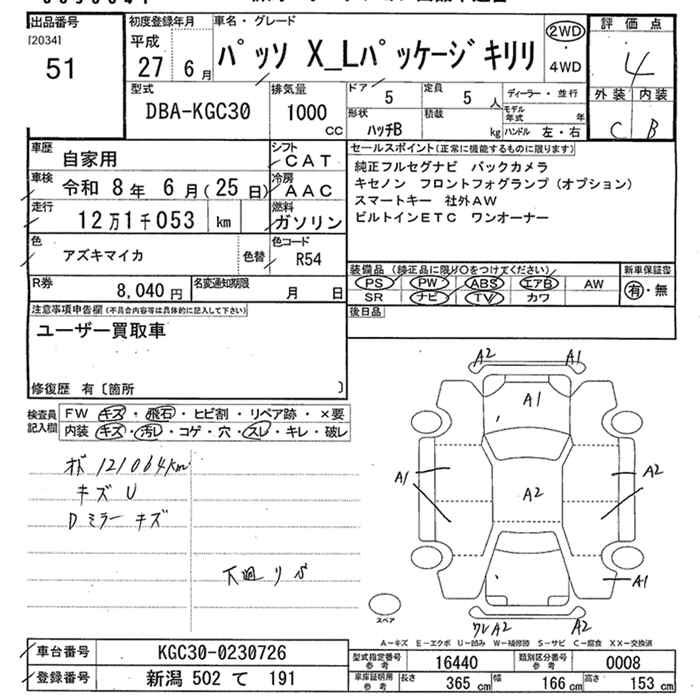 出品番号 [2034] 51
初度登録年月 平成 27年 6月
車名・グレード パッソ X_Lパッケージキリリ
2WD・4WD
評価点 4
外装 C 内装 B
型式 DBA-KGC30
排気量 1000 CC
ドア 5 定員 5 人
形状 ハッチB 積載 kg
ディーラー・並行
モデル年式 年
ハンドル 左・右
車歴 自家用
シフト CAT
車検 令和 8年 6月(25日)
冷房 AAC
走行 12万1千053 km
燃料 ガソリン
色 アズキマイカ 色替
色コード R54
R券 8,040円 名変通知期限 月 日
セールスポイント(正常に機能するものに限ります)
純正フルセグナビ バックカメラ
キセノン フロントフォグランプ(オプション)
スマートキー 社外AW
ビルトインETC ワンオーナー
装備品(純正品に限り○をつけてください)
PS PW ABS エアB AW
SR ナビ TV カワ
新車保証書 有・無
後日品
注意事項申告欄(不具合内容等は具体的に記入して下さい)
ユーザー買取車
修復歴 有〔箇所 〕
検査員記入欄
FW キズ・飛石・ヒビ割・リペア跡・×要
内装 キズ・汚レ・コゲ・穴・スレ・キレ・破レ
オド 121064km
キズ U
Dミラー キズ
下廻りサビ
A2 A1
A1
A1 A2 A2
A1
ワレ A2 A2
スペア
A-キズ E-エクボ U-凹み W-補修跡 S-サビ C-腐食 XX-交換済
車台番号 KGC30-0230726
登録番号 新潟 502 て 191
型式指定番号 参考 16440 類別区分番号 参考 0008
車庫証明用 参考 長さ 365 cm 幅 166 cm 高さ 153 cm